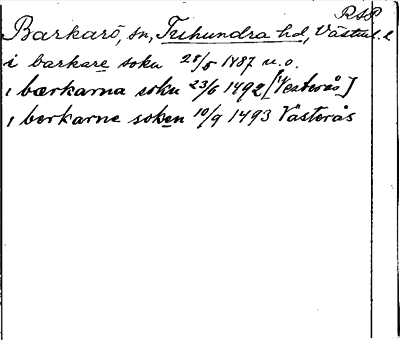 RSP
Barkarö, sn, Tuhundra hd, Västml. l
i barkare sokn 28/5 1487 u. o.
i bærkarna sokn 23/6 1492 [Vesterås]
i berkarne soken 10/9 1493 Västerås